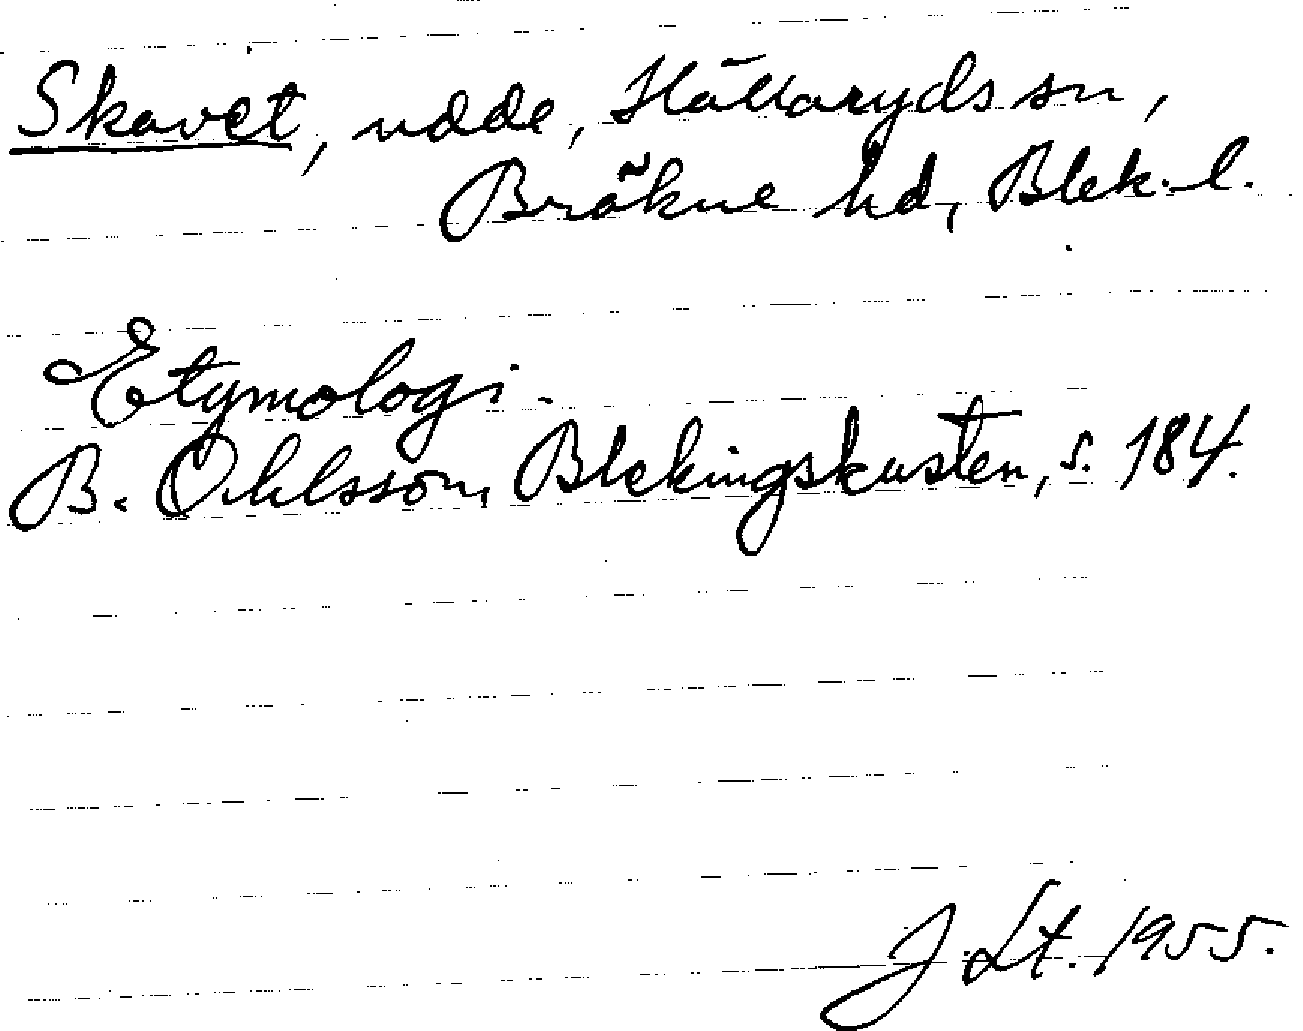 Skavet, udde, Hällaryds sn,
Bräkne hd, Blek. l.
Etymologi.
B. Ohlsson, Blekingskusten, s. 184.
J Lt. 1955.